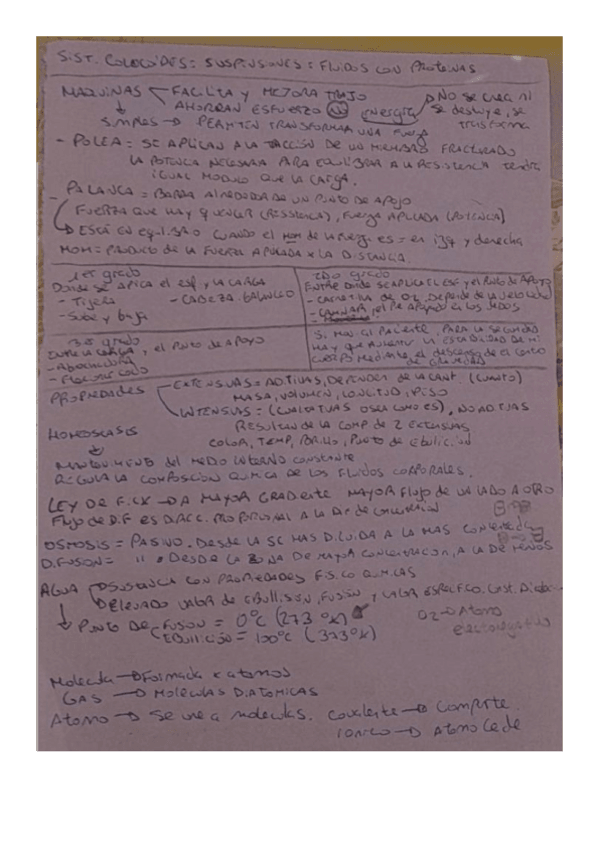 SIST. COLOCOIDES = SUSPENSIONES = FLUIDOS CON PROTEINAS
MAQUINAS FACILITA Y MEJORA TRAJO
AHORRAN ESFUERZO NO ENERGIA → NO SE CREA NI
SE DESTUYE, SE
TRASFORMA
SIMPLES → PERMITEN TRANSFORMAR UNA FUERZA
- POLEA = SE APLICAN A LA TRACCIÓN DE UN MIEMBRO FRACTURADO
LA POTENCIA NECESARIA PARA EQUILIBRAR A LA RESISTENCIA tendra
IGUAL MODULO QUE LA CARGA.
- PALANCA = BARRA ALREDEDOR DE UN PUNTO DE APOYO
FUERZA QUE HAY Q VENCER (RESISTENCIA), FUERZA APLICADA (POTENCIA)
→ ESTÁ EN EQUILIBRIO CUANDO el MOM de la fuerza es = en izq y derecha
MOM = PRODUCTO DE LA FUERZA APLICADA X LA DISTANCIA.
1er grado
Donde se aplica el esf y LA CARGA
- Tijera - CABEZA. BALANCEO
- Sube y baja
2DO grado
ENTRE Donde SE APLICA EL ESF y el PUNTO DE APOYO
- CAMINAR, el Pie APOYADO en los DEDOS
3er grado
ENTRE LA CARGA y el PUNTO DE APOYO
- Abducción
- Flexion codo
S. MOV al PACIENTE, PARA LA SEGURIDAD
HAY QUE AUMENTAR LA ESTABILIDAD DE MI
CUERPO MEDIANTE el descenso de el centro
de GRAVEDAD
PROPIEDADES EXTENSIVAS = ADITIVAS, DEPENDEN DE LA CANT (CUANTO)
MASA, VOLUMEN, LONGITUD, PESO
INTENSIVAS = (CUALITATIVAS O SEA COMO ES), NO ADITIVAS
Resultan de la COMP de 2 EXTENSIVAS
COLOR, TEMP, BRILLO, PUNTO DE EBULICION
HOMEOSTASIS
MANTENIMIENTO del MEDIO INTERNO CONSTANTE
REGULA LA COMPOSICIÓN QUIMICA DE LOS FLUIDOS CORPORALES.
LEY DE FICK → A MAYOR GRADIENTE MAYOR Flujo de UN LADO A OTRO
Flujo de DIF es DIREC. PROPORCIONAL A LA DIF de CONCENTRACION
OSMOSIS = PASIVO. Desde LA SC MAS DILUIDA A LA MAS CONCENTRADA
DIFUSION = " . DESDE LA ZONA DE MAYOR CONCENTRACION, A LA DE MENOS
AGUA → SUSTANCIA CON PROPIEDADES FISICO QUIMICAS
→ ELEVADO VALOR DE EBULLISIÓN, FUSIÓN Y CALOR ESPECIFICO.
PUNTO DE FUSION = 0°C (273 °K)
EBULLICIÓN = 100°C (373 °K)
O2 → Atomo
electronegativo
Molecula → Formada x atomos
GAS → MOLECULAS DIATOMICAS
ATOMO → SE UNE A moleculas. Covalente → Comparte.
IONICO → ATOMO Cede